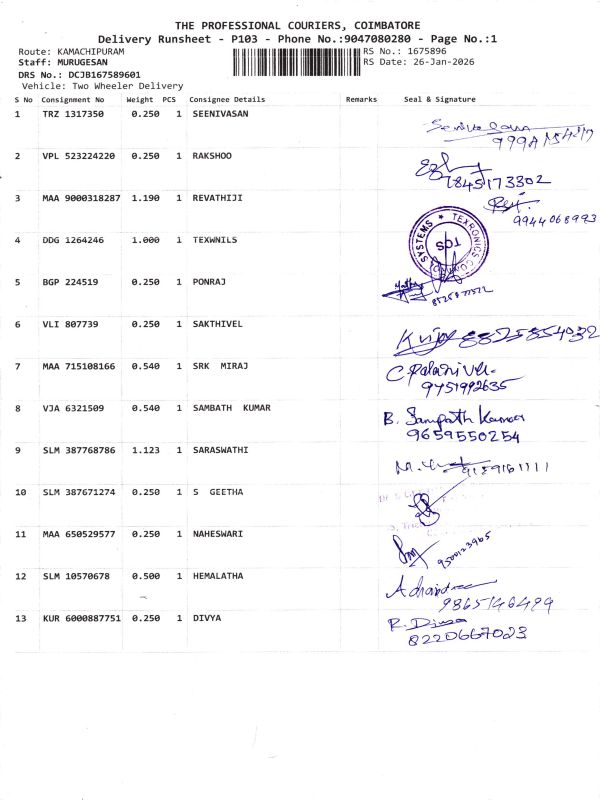 THE PROFESSIONAL COURIERS, COIMBATORE
Delivery Runsheet - P103 - Phone No.:9047080280 - Page No.:1
Route: KAMACHIPURAM RS No.: 1675896
Staff: MURUGESAN RS Date: 26-Jan-2026
DRS No.: DCJB167589601
Vehicle: Two Wheeler Delivery
S No Consignment No Weight PCS Consignee Details Remarks Seal & Signature
1 TRZ 1317350 0.250 1 SEENIVASAN
2 VPL 523224220 0.250 1 RAKSHOO
7845173302
3 MAA 9000318287 1.190 1 REVATHIJI
9944068993
4 DDG 1264246 1.000 1 TEXWNILS
SYSTEMS ★ TEXRONICS
TCS
5 BGP 224519 0.250 1 PONRAJ
6 VLI 807739 0.250 1 SAKTHIVEL
8825854032
7 MAA 715108166 0.540 1 SRK MIRAJ
C. Palanivel
9751992635
8 VJA 6321509 0.540 1 SAMBATH KUMAR
B. Sampath Kumar
9659550254
9 SLM 387768786 1.123 1 SARASWATHI
9159161111
10 SLM 387671274 0.250 1 S GEETHA
11 MAA 650529577 0.250 1 NAHESWARI
9500123965
12 SLM 10570678 0.500 1 HEMALATHA
9865146499
13 KUR 6000887751 0.250 1 DIVYA
R. Divya
8220667023